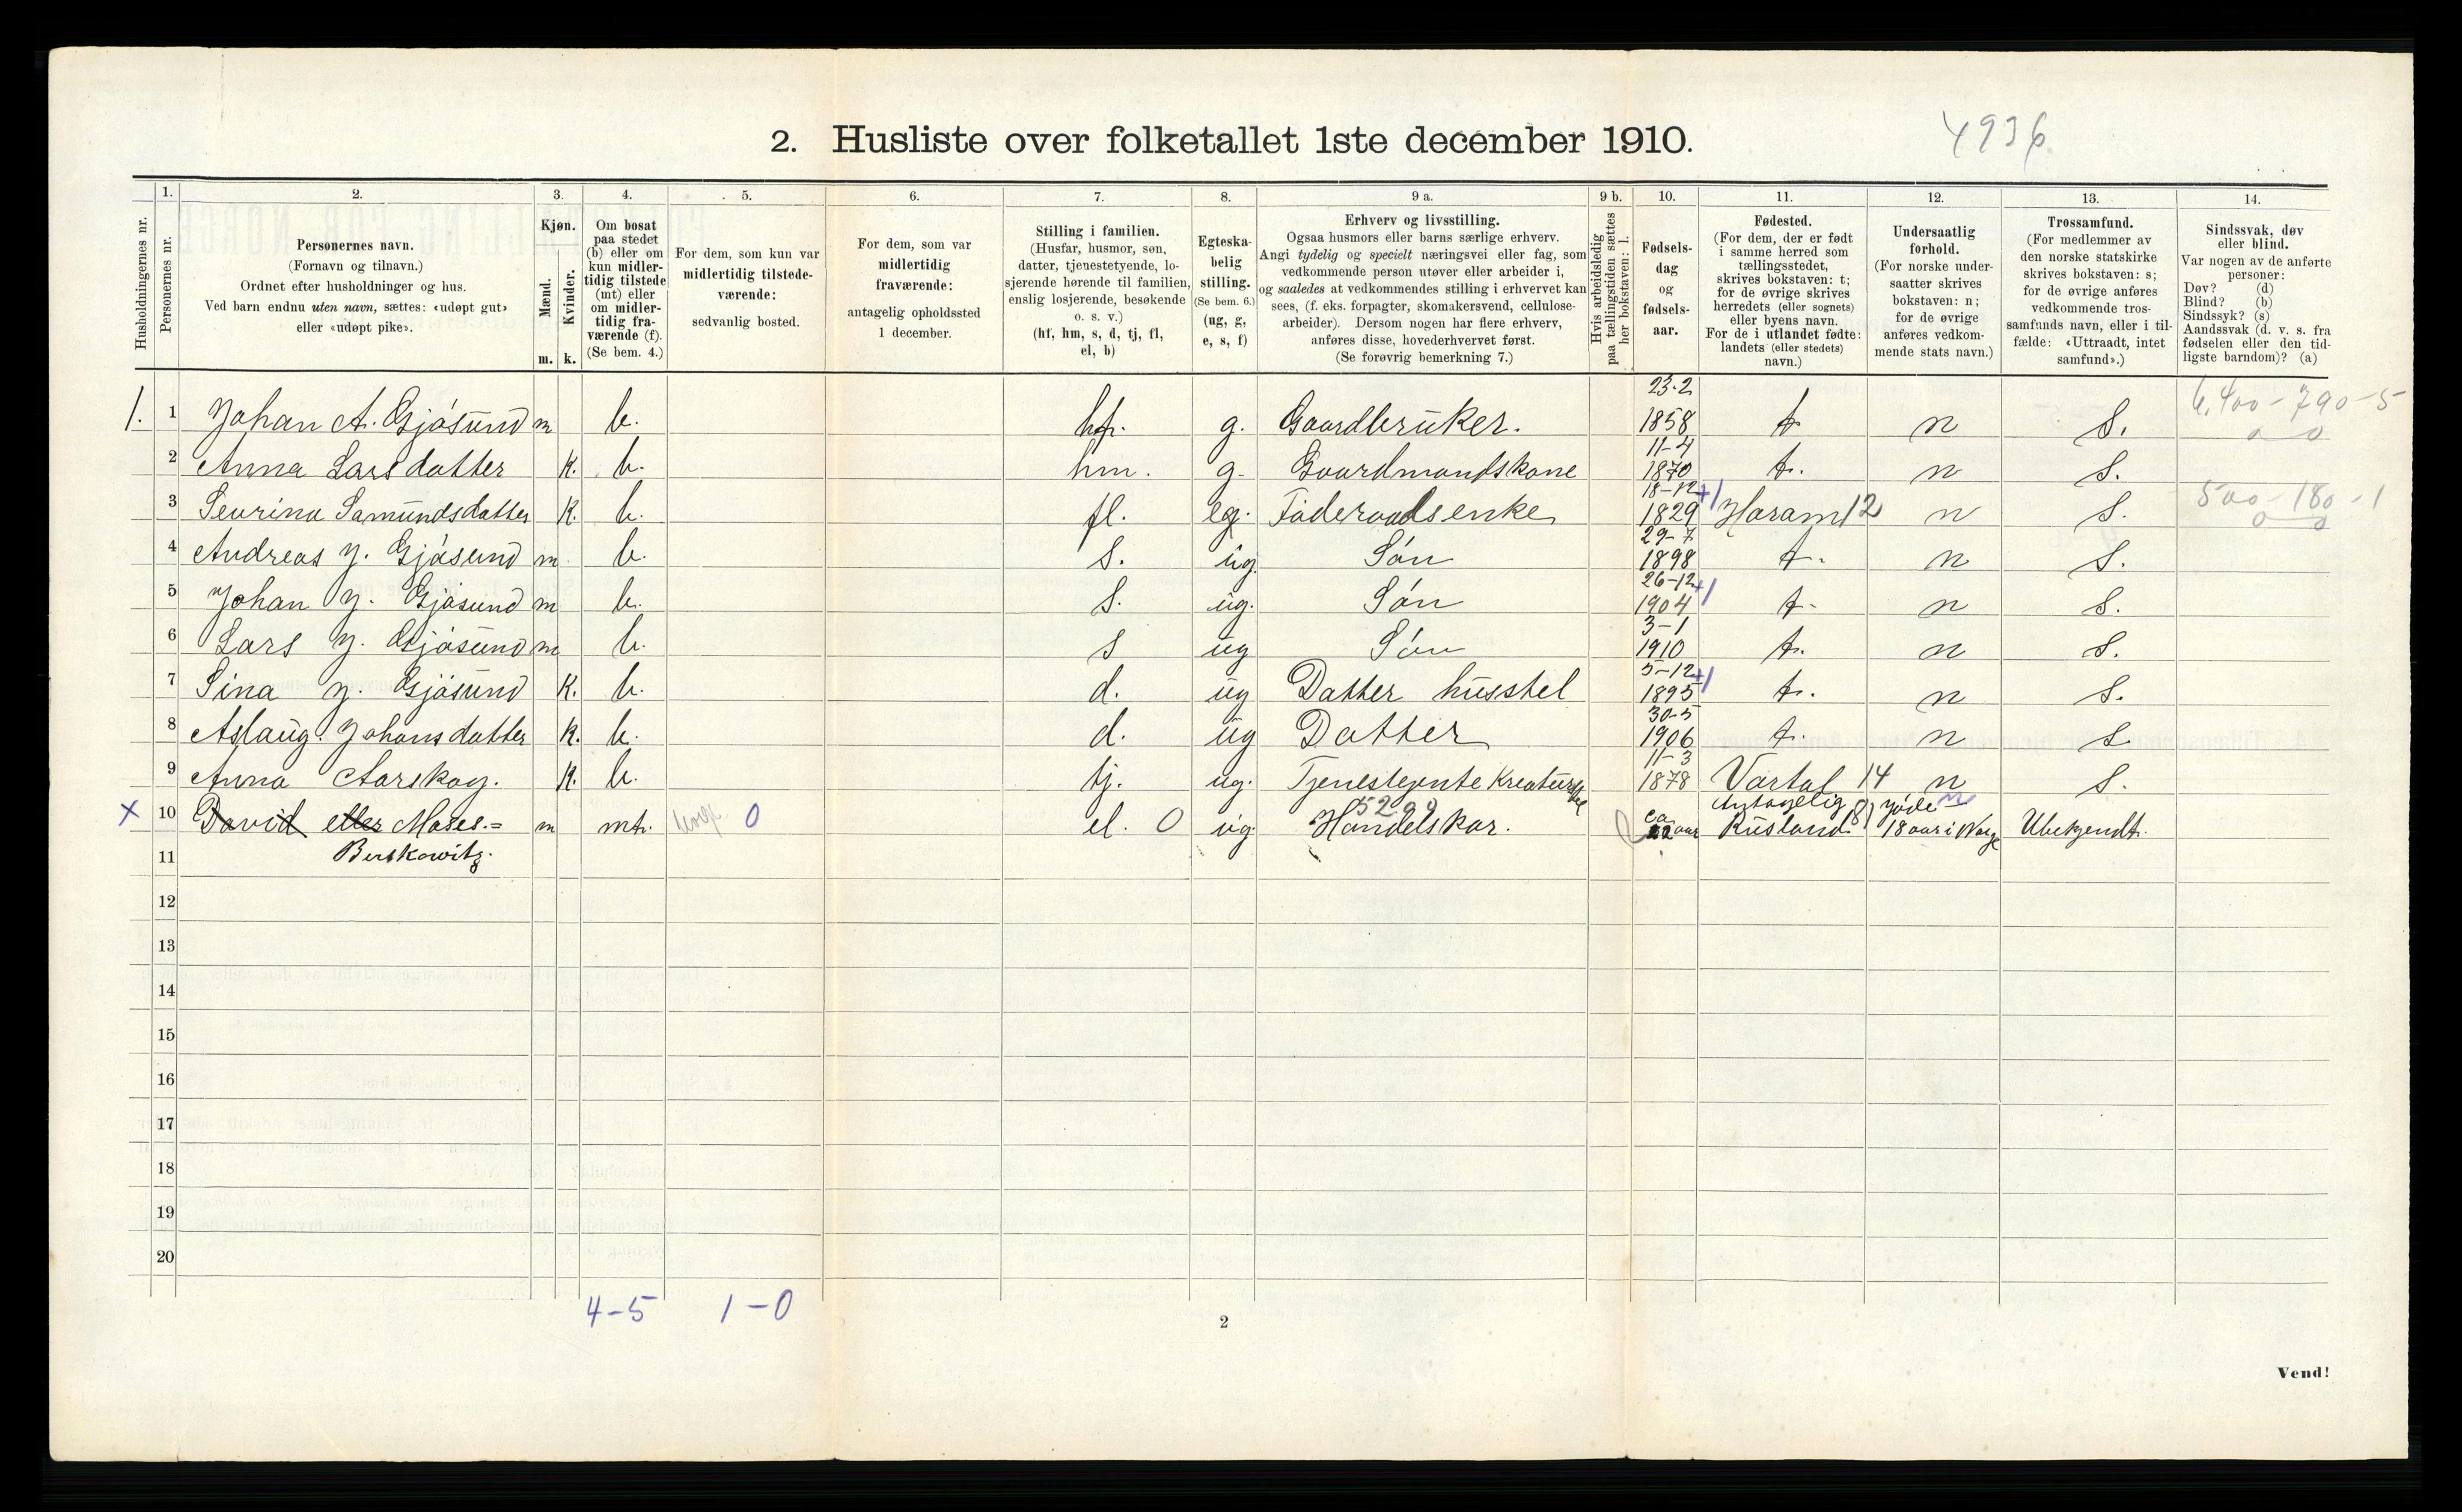 2. Husliste over folketallet 1ste december 1910.
4936
1. 2. 3. 4. 5. 6. 7. 8. 9 a. 9 b. 10. 11. 12. 13. 14.
Husholdningernes nr.
Personernes nr.
Personernes navn.
(Fornavn og tilnavn.)
Ordnet efter husholdninger og hus.
Ved barn endnu uten navn, sættes: «udøpt gut»
eller «udøpt pike».
Kjøn.
Mænd.
Kvinder.
m. k.
Om bosat
paa stedet
(b) eller om
kun midler-
tidig tilstede
(mt) eller
om midler-
tidig fra-
værende (f).
(Se bem. 4.)
For dem, som kun var
midlertidig tilstede-
værende:
sedvanlig bosted.
For dem, som var
midlertidig
fraværende:
antagelig opholdssted
1 december.
Stilling i familien.
(Husfar, husmor, søn,
datter, tjenestetyende, lo-
sjerende hørende til familien,
enslig losjerende, besøkende
o. s. v.)
(hf, hm, s, d, tj, fl,
el, b)
Egteska-
belig
stilling.
(Se bem. 6.)
(ug, g,
e, s, f)
Erhverv og livsstilling.
Ogsaa husmors eller barns særlige erhverv.
Angi tydelig og specielt næringsvei eller fag, som
vedkommende person utøver eller arbeider i,
og saaledes at vedkommendes stilling i erhvervet kan
sees, (f. eks. forpagter, skomakersvend, cellulose-
arbeider). Dersom nogen har flere erhverv,
anføres disse, hovederhvervet først.
(Se forøvrig bemerkning 7.)
Hvis arbeidsledig
paa tællingstiden sættes
her bokstaven: l.
Fødsels-
dag
og
fødsels-
aar.
Fødested.
(For dem, der er født
i samme herred som
tællingsstedet,
skrives bokstaven: t;
for de øvrige skrives
herredets (eller sognets)
eller byens navn.
For de i utlandet fødte:
landets (eller stedets)
navn.)
Undersaatlig
forhold.
(For norske under-
saatter skrives
bokstaven: n;
for de øvrige
anføres vedkom-
mende stats navn.)
Trossamfund.
(For medlemmer av
den norske statskirke
skrives bokstaven: s;
for de øvrige anføres
vedkommende tros-
samfunds navn, eller i til-
fælde: «Uttraadt, intet
samfund».)
Sindssvak, døv
eller blind.
Var nogen av de anførte
personer:
Døv? (d)
Blind? (b)
Sindssyk? (s)
Aandssvak (d. v. s. fra
fødselen eller den tid-
ligste barndom)? (a)
1. 1 Johan A. Gjøsund m b. hf. g. Gaardbruker. 23-2 1858 t n S. 6,400-790-5
2 Anna Larsdatter K. b. hm. g- Gaardmandskone 11-4 1870 t. n S.
3 Sevrina Samundsdatter K. b. fl. eg. Føderaadsenke 18-12 1829 Haram 12 n S. 500-180-1
4 Andreas J. Gjøsund m b. S. ug. Søn 29-7 1898 t. n S.
5 Johan J. Gjøsund m b. S. ug. Søn 26-12 1904 t. n S.
6 Lars J. Gjøsund m b. S ug Søn 3-1 1910 t. n S.
7 Sina J. Gjøsund K. b. d. ug Datter husstel 5-12 1895 t. n S.
8 Aslaug Johansdatter K. b. d. ug Datter 30-5 1906 t. n S
9 Anna Aarskog. K. b. tj. ug. Tjenestejente Kreaturstel 11-3 1878 Vartal 14 n S.
x 10 David eller Moses.= m mt. 0 el. 0 ug. 5299 Handelskar. ca 22 aar Antagelig Rusland. 8) Jøde n 18 aar i Norge Ubekjendt.
11 Berskowitz.
12
13
14
15
16
17
18
19
20
4-5 1-0
2
Vend!